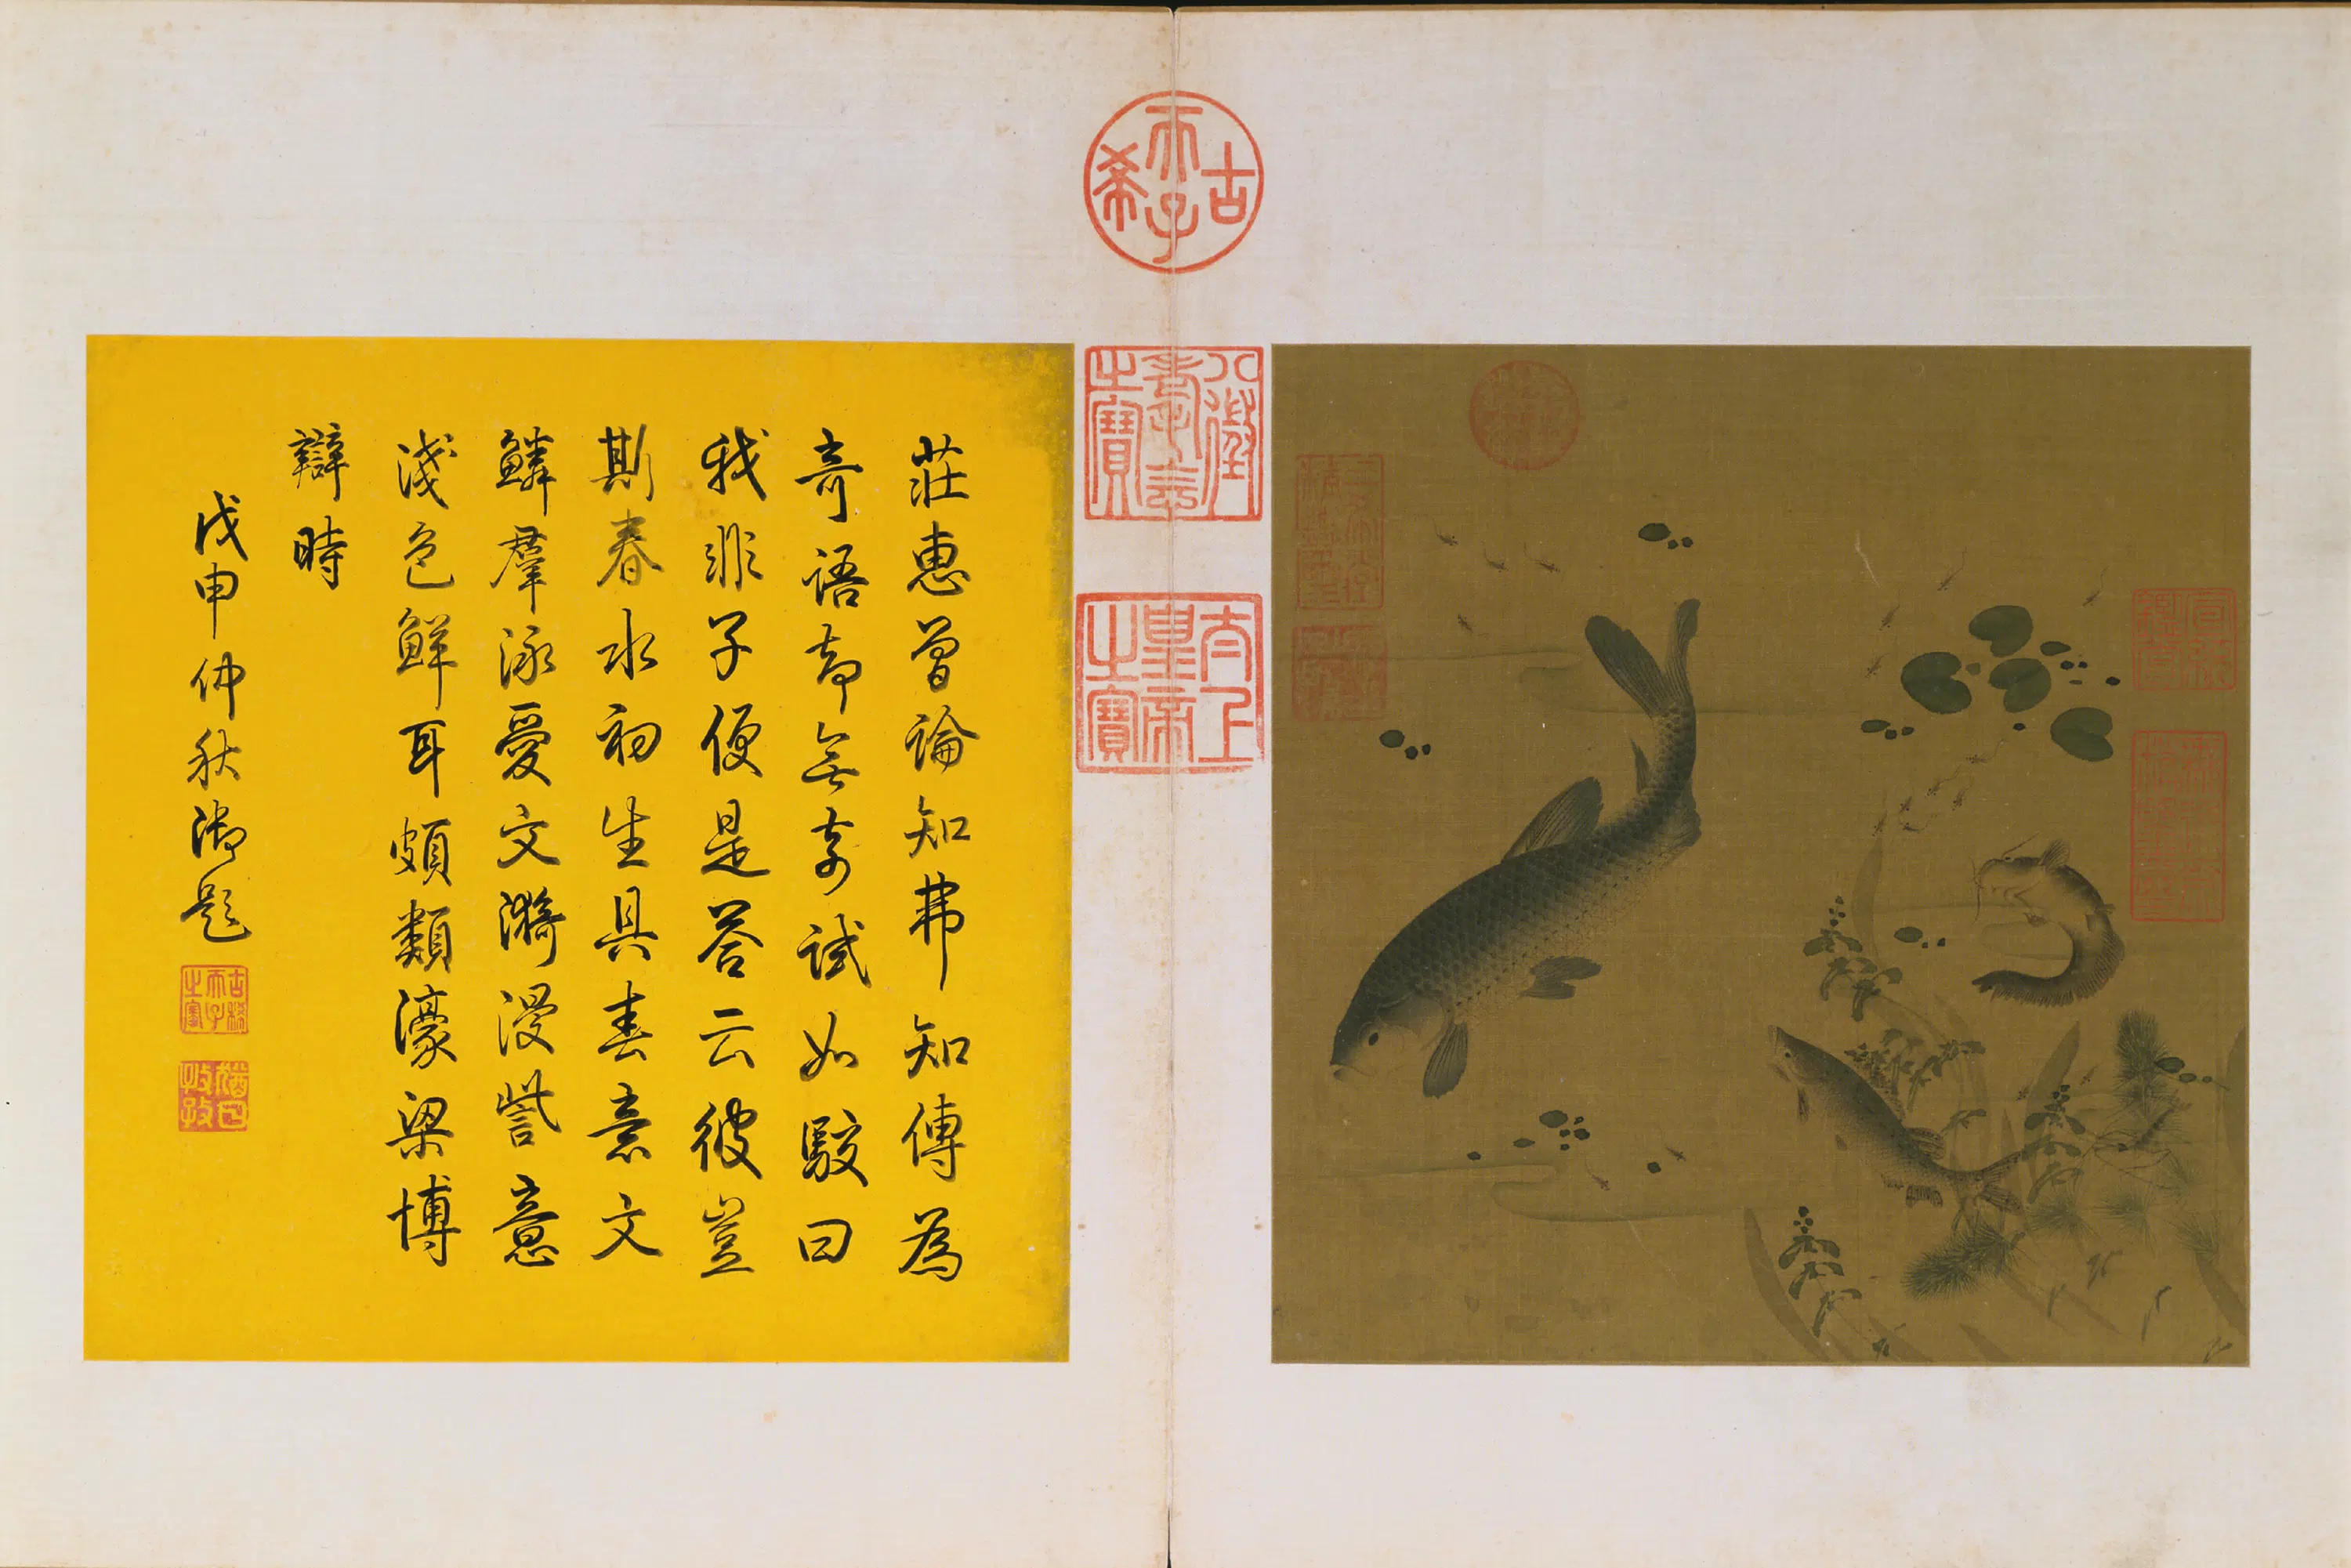 古希天子
八徵耄念之寶
太上皇帝之寶
莊惠曾論知弗知傳為
奇語都無奇試如駮曰
我非子便是答云彼豈
斯春水初生具春意文
鱗羣泳愛文漪漫訾意
淺色鮮耳頗類濠梁博
辯時
戊申仲秋御題
古稀天子之寶
猶日孜孜